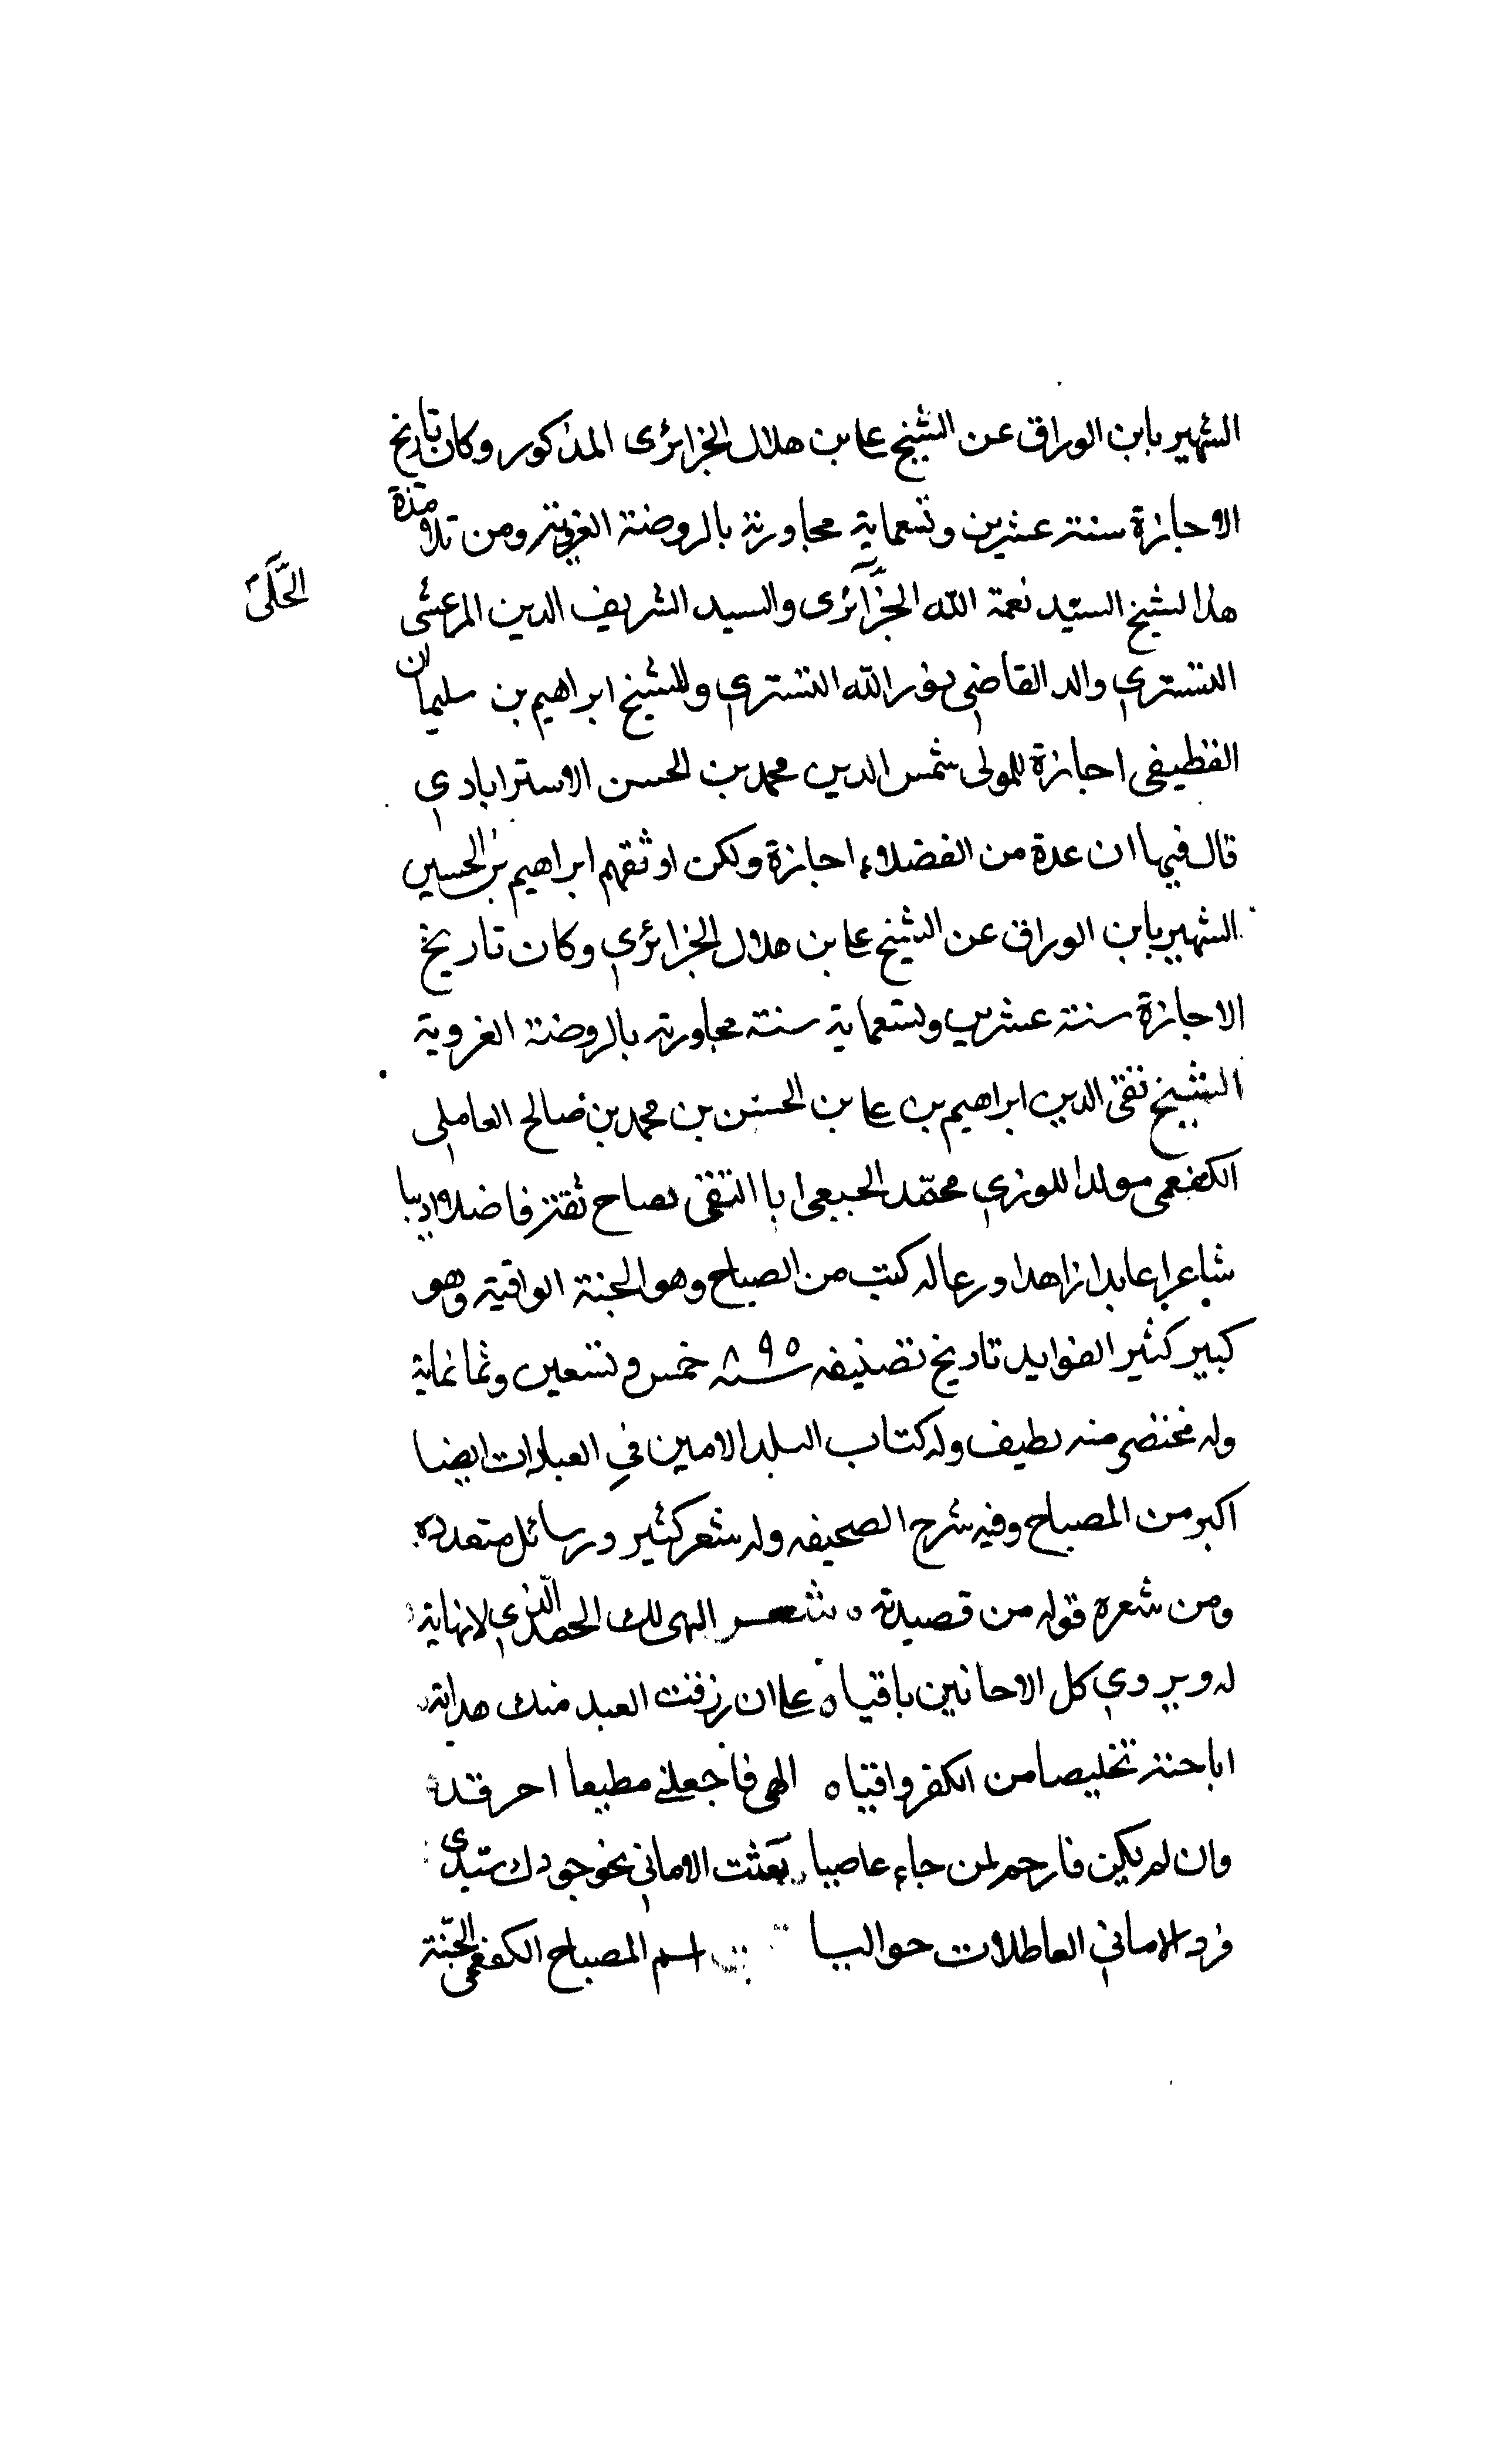 الشهير بابن الوراق عن الشيخ على بن هلال الجزائرى المذكور وكان تاريخ
الاجازة سنة عشرين وتسعماية مجاورته بالروضة الغروية ومن تلامذة
هذا الشيخ السيّد نعمة الله الجزائرى والسيد الشريف الدين المرعشى
الحلّى
التسترى والد القاضى نور الله التسترى وللشيخ ابراهيم بن سليمان
القطيفى اجازة للمولى شمس الدين محمد بن الحسن الاسترابادي
قال فيها ان عدة من الفضلاء اجازة ولكن اوثقهم ابراهيم بن الحسين
الشهير بابن الوراق عن الشيخ على بن هلال الجزائرى وكان تاريخ
الاجازة سنة عشرين وتسعماية سنة مجاورته بالروضة الغروية
الشيخ تقى الدين ابراهيم بن على بن الحسن بن محمد بن صالح العاملى
الكفعمى مولدا اللوزي محمّد الجبعى ابا التقى ثقة فاضلا اديبا
شاعرا عابدا زاهدا ورعا له كتب من الصباح وهو الجنة الواقية وهو
كبير كثير الفوايد تاريخ تصنيفه سنة ٨٩٥ خمس و تسعين وثمانماية
وله مختصر منه لطيف وله كتاب البلد الامين في العبادات ايضا
اكبر من المصباح وفيه شرح الصحيفه وله شعر كثير ورسائل متعدده
ومن شعره قوله من قصيدته شعر الهى لك الحمد الذي لا نهاية
له ويروي كل الاحانين باقيا على ان رزقت العبد منك هداية
اباحته تخليصا من الكفر واقيا الهى فاجعلني مطيعا اجر قد
وان لم يكن فارحم لمن جاء عاصيا بعثت الاماني نحو جودك سيّدى
فرد الاماني العاطلات حواليا اسم المصباح الكفعمى الجنّة